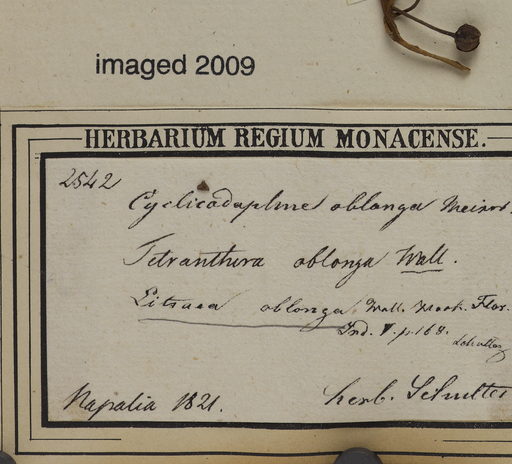 imaged 2009
HERBARIUM REGIUM MONACENSE.
2542
Cyclicodaphne oblonga Meissn.
Tetranthera oblonga Wall.
Litsaea oblonga. Wall. Hook. Flor.
Ind. V. p. 168.
Napalia 1821.
herb. Schultes